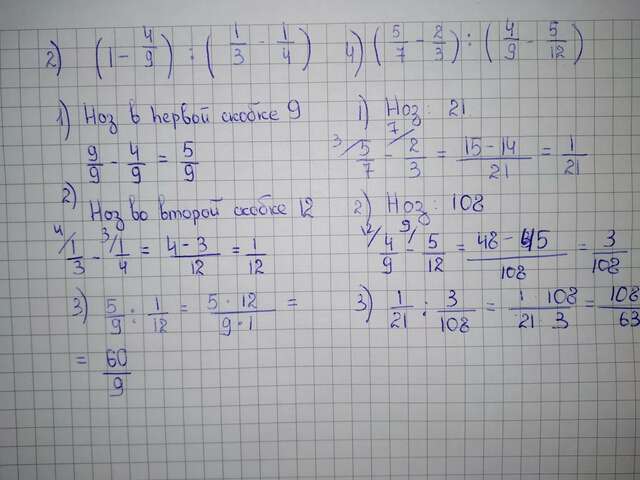 2) (1 - 4/9) : (1/3 - 1/4)
1) Ноз в первой скобке 9
9/9 - 4/9 = 5/9
2) Ноз во второй скобке 12
4/ 1/3 - 3/ 1/4 = 4-3/12 = 1/12
3) 5/9 : 1/12 = 5·12/9·1 =
= 60/9
4) (5/7 - 2/3) : (4/9 - 5/12)
1) Ноз: 21
3/ 5/7 - 7/ 2/3 = 15-14/21 = 1/21
2) Ноз: 108
12/ 4/9 - 9/ 5/12 = 48-45/108 = 3/108
3) 1/21 : 3/108 = 1 108/21 3 = 108/63